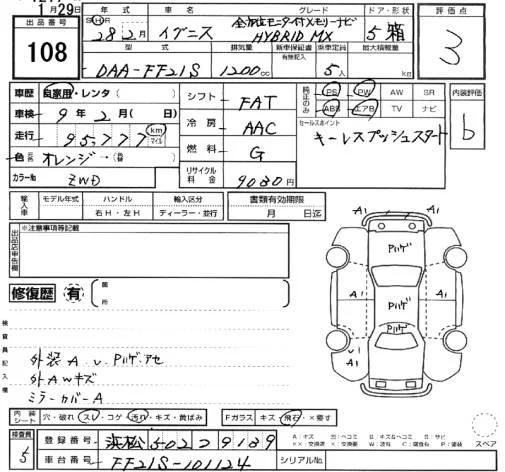 1月29日
出品番号 108
年式 SHR 28年2月
車名 イグニス
グレード 全方位モニター付メモリーナビ HYBRID MX
ドア・形状 5 箱
評価点 3
型式 DAA-FF21S
排気量 1200cc
新車保証書 有無記入
乗車定員 5人
最大積載量 kg
車歴 自家用・レンタ( )
車検 9年2月( 日)
走行 95,777 km マイル
色 元色 オレンジ→(替 )
カラーNo ZWD
シフト FAT
冷房 AAC
燃料 G
リサイクル料金 9080円
純正のみ PS PW AW SR
ABS エアB TV ナビ
セールスポイント
キーレスプッシュスタート
内装評価 b
輸入車 モデル年式 ハンドル 右H・左H 輸入区分 ディーラー・並行
書類有効期限 月 日迄
出品店申告欄
※注意事項等記載
修復歴 有 箇所
検査員記入欄
外装 A U Pハゲ アセ
外AWキズ
ミラーカバーA
A1 Pハゲ A1
A1 Pハゲ A1
Pハゲ
A1 A1
内装シート 穴・破れ スレ・コゲ 汚れ・キズ・黄ばみ
Fガラス キズ 飛石・×要す
検査員 5
登録番号 浜松 502 ス 9139
車台番号 FF21S-101124
シリアルNo.
A:キズ U:ヘコミ B:キズ&ヘコミ S:サビ
××:交換済 ×:要交換 W:波有 C:腐食有 P:塗装
スペア